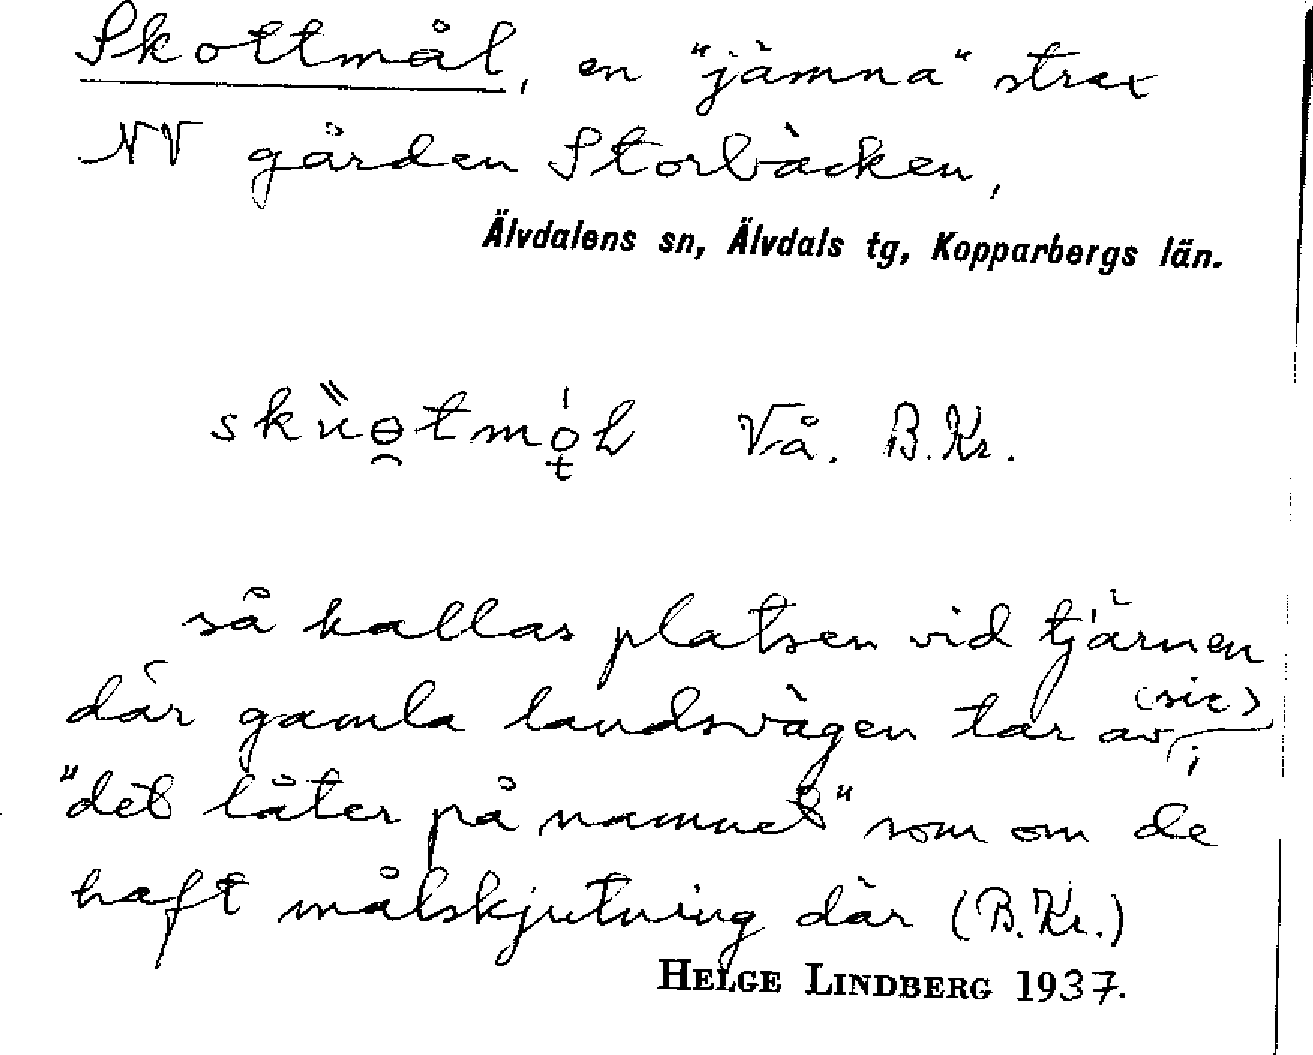 Skottmål, en "jämna" strax
NV gården Storbäcken,
Älvdalens sn, Älvdals tg, Kopparbergs län.
Vå. B.Kr.
så kallas platsen vid tjärnen
där gamla landsvägen tar av (sic);
"det låter på namnet" som om de
haft målskjutning där (B.Kr.)
HELGE LINDBERG 1937.